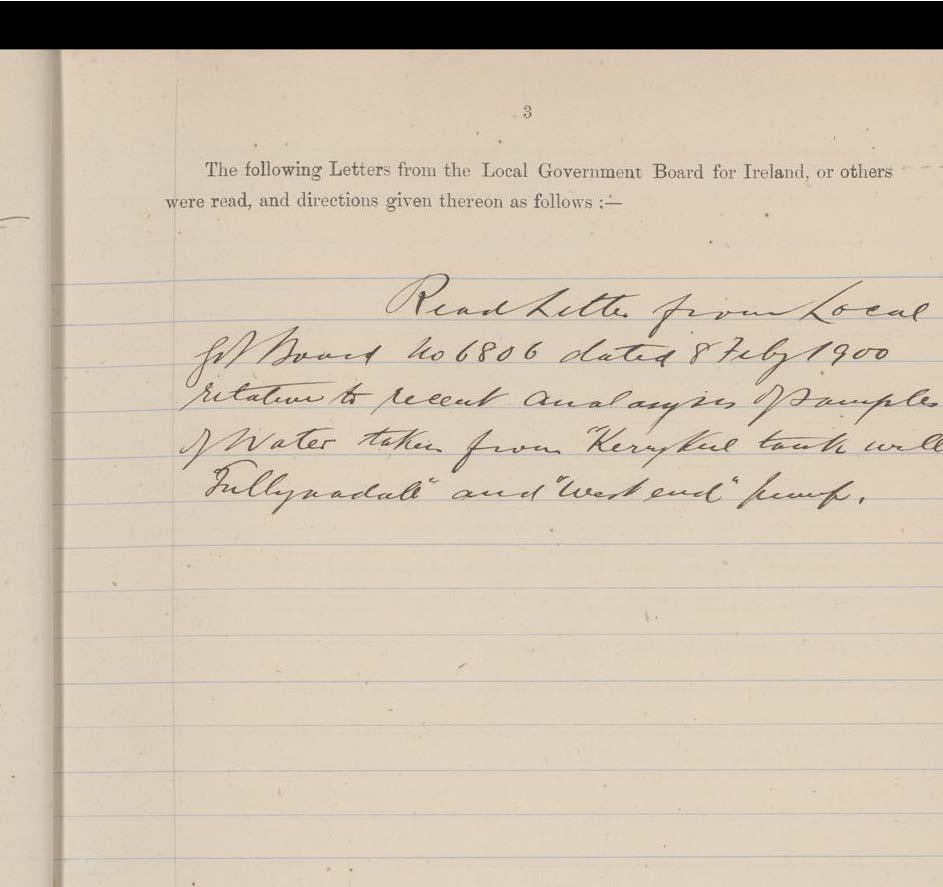 3
The following Letters from the Local Government Board for Ireland, or others
were read, and directions given thereon as follows :—
Read Letter from Local
Govt Board No 6806 dated 8 Feby 1900
relative to recent analasysis of samples
of Water taken from "Kerrykeel tank well
"Tullynadall" and "West end" pump.